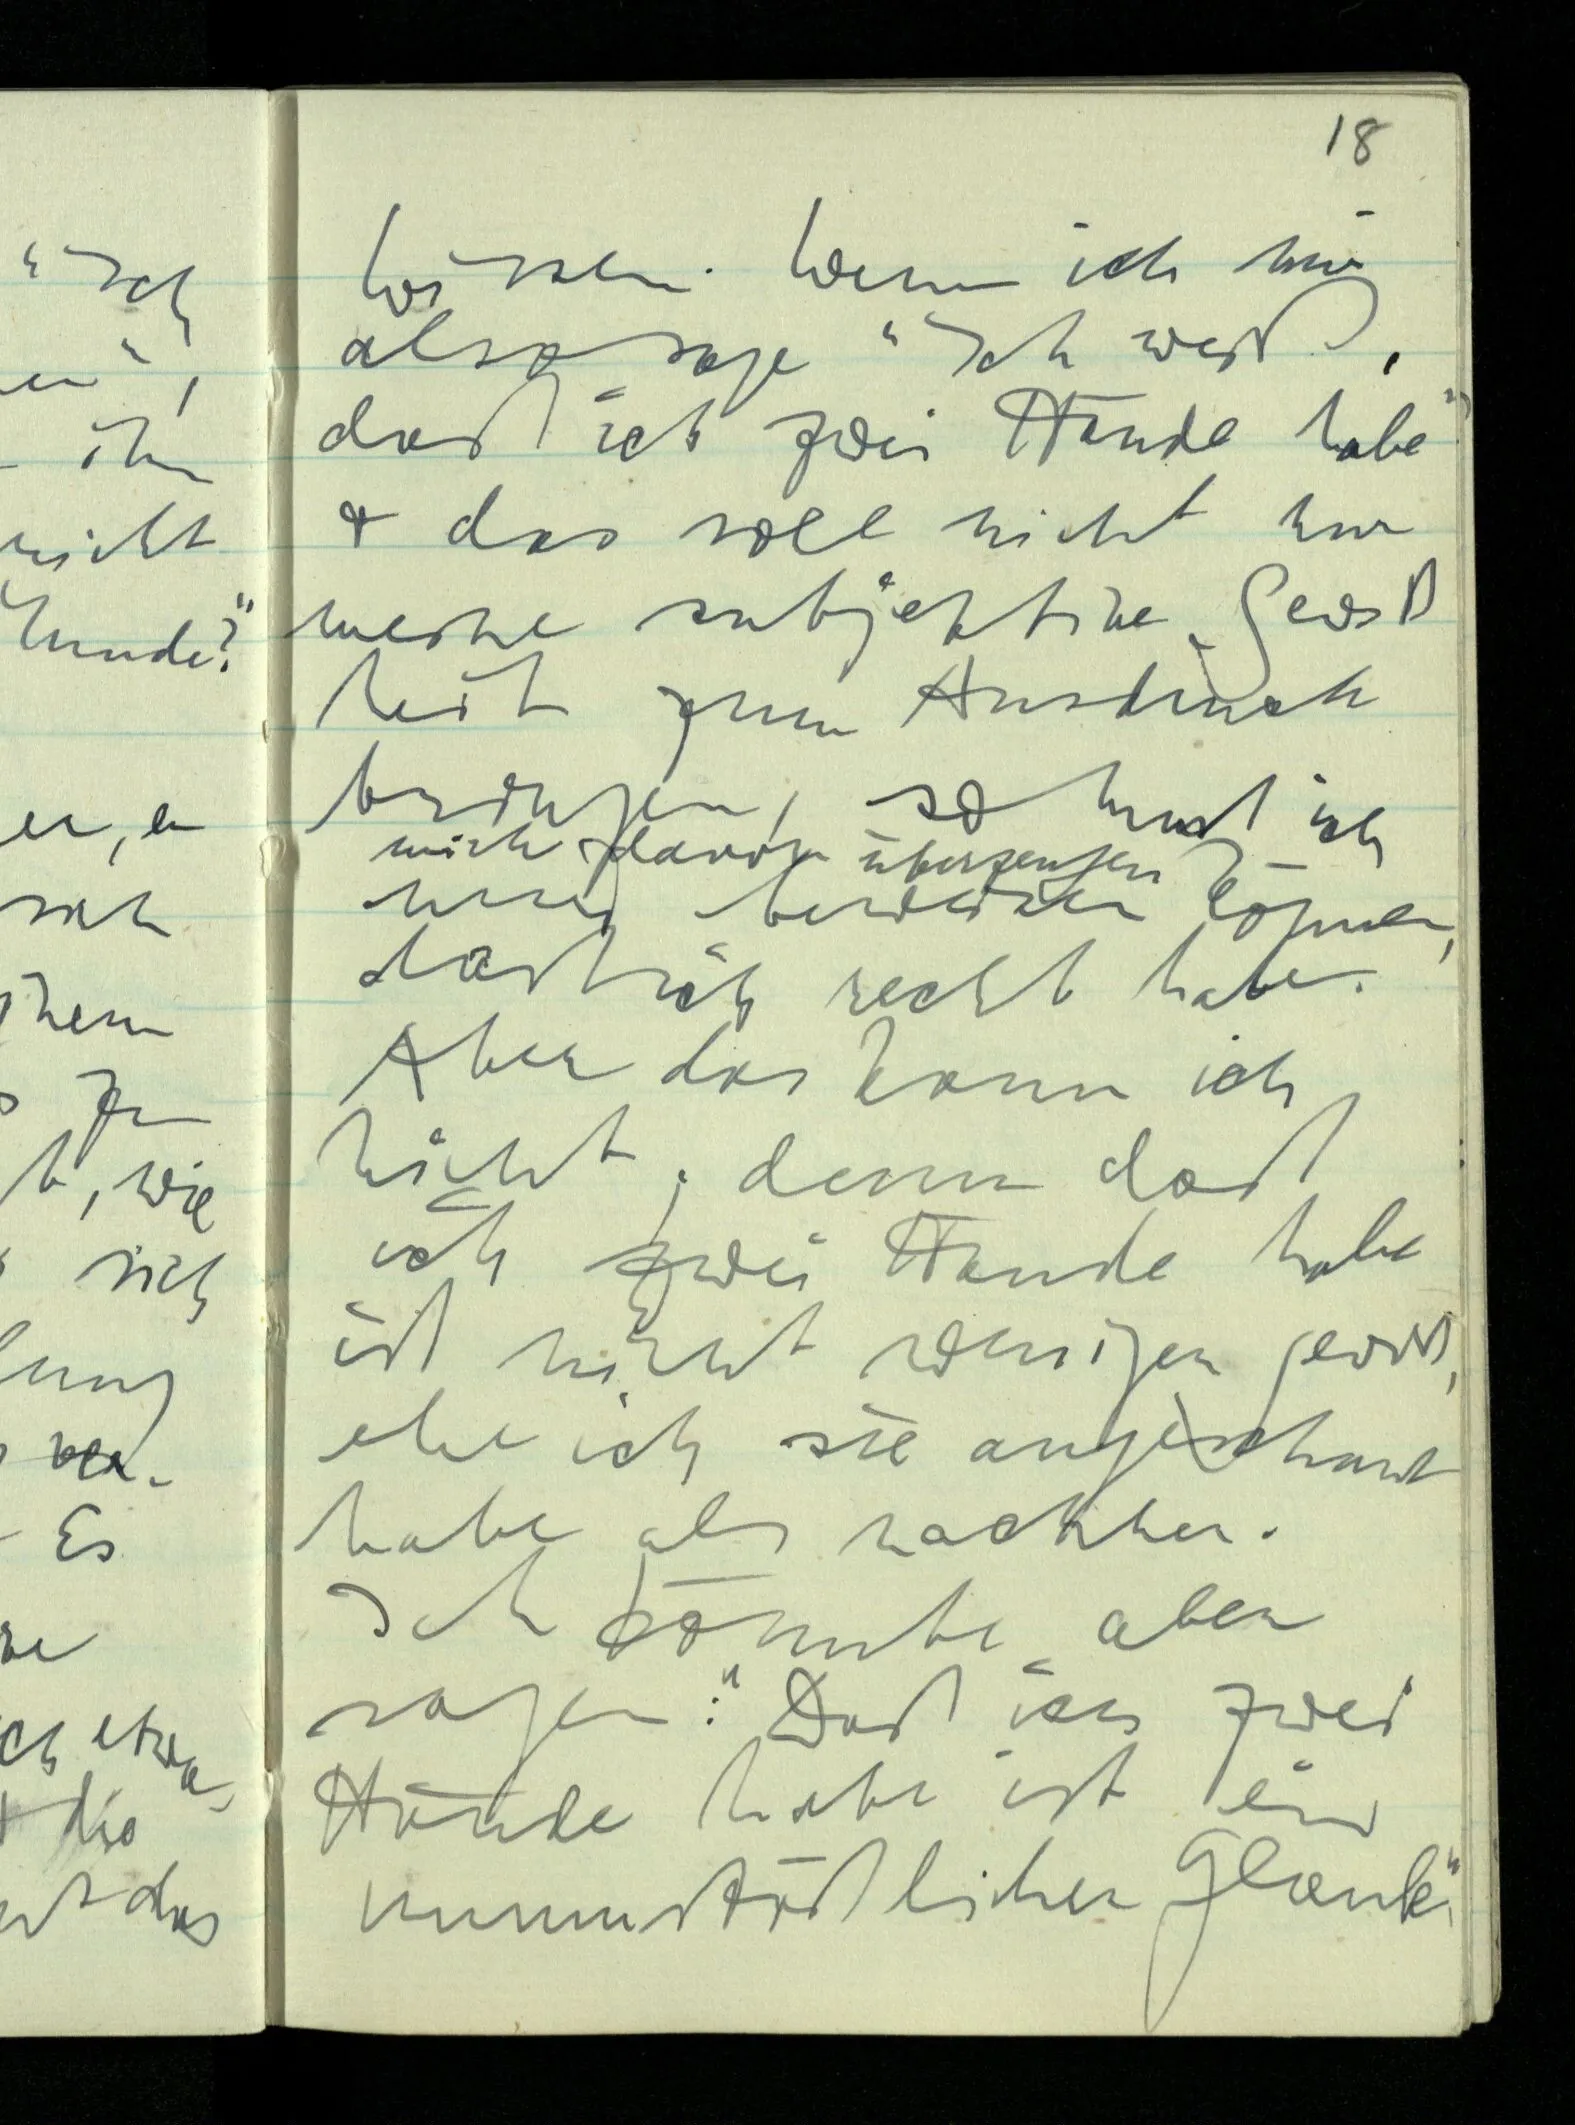 18
wissen. Wenn ich nun
also sage "Ich weiß,
daß ich zwei Hände habe"
& das soll nicht nur
meine subjektive Gewiß
heit zum Ausdruck
bringen, so muß ich
mich davon überzeugen
beweisen können,
daß ich recht habe.
Aber das kann ich
nicht, denn daß
ich zwei Hände habe
ist nicht weniger gewiß,
ehe ich sie angeschaut
habe als nachher.
Ich könnte aber
sagen: "Daß ich zwei
Hände habe ist ein
unumstößlicher Glaube"
"Ich
en",
ihm
nicht
Hunde?"
er, er
sich
zu
t, wie
sich
ung
ver-
Es
ch etwa
& die
das